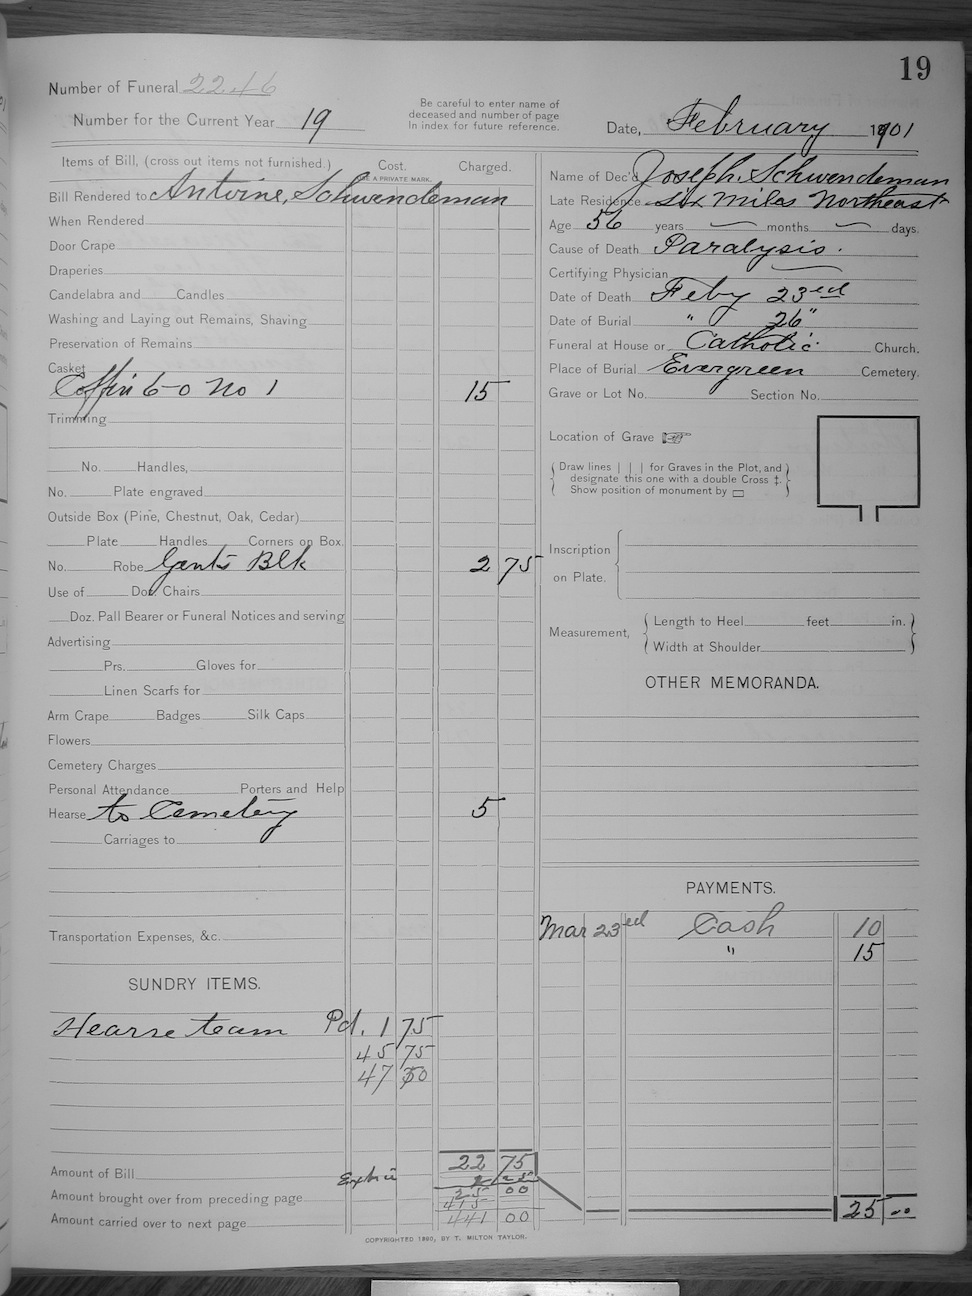 19
Number of Funeral 2246
Number for the Current Year 19
Be careful to enter name of
deceased and number of page
in index for future reference.
Date, February 1901
Items of Bill, (cross out items not furnished.) Cost. Charged.
USE A PRIVATE MARK.
Bill Rendered to Antoine, Schwendeman
When Rendered
Door Crape
Draperies
Candelabra and Candles
Washing and Laying out Remains, Shaving
Preservation of Remains
Casket
Coffin 6-0 No 1 15
Trimming
No. Handles,
No. Plate engraved
Outside Box (Pine, Chestnut, Oak, Cedar)
Plate Handles Corners on Box.
No. Robe Gents Blk 2 75
Use of Doz. Chairs
Doz. Pall Bearer or Funeral Notices and serving
Advertising
Prs. Gloves for
Linen Scarfs for
Arm Crape Badges Silk Caps
Flowers
Cemetery Charges
Personal Attendance Porters and Help
Hearse to Cemetery 5
Carriages to
Transportation Expenses, &c.
SUNDRY ITEMS.
Hearse team Pd. 1 75
45 75
47 50
Amount of Bill 22 75
2 25
Amount brought over from preceding page 25 00
415
Amount carried over to next page 441 00
COPYRIGHTED 1890, BY T. MILTON TAYLOR.
Name of Dec'd Joseph. Schwendeman
Late Residence Six Miles Northeast
Age 56 years — months — days.
Cause of Death Paralysis.
Certifying Physician
Date of Death Feby 23ed
Date of Burial " 26"
Funeral at House or Catholic Church.
Place of Burial Evergreen Cemetery.
Grave or Lot No. Section No.
Location of Grave ☞
Draw lines | | | for Graves in the Plot, and
designate this one with a double Cross ‡.
Show position of monument by ▭
Inscription
on Plate.
Measurement, Length to Heel feet in.
Width at Shoulder
OTHER MEMORANDA.
PAYMENTS.
Mar 23ed Cash 10
" 15
25 --